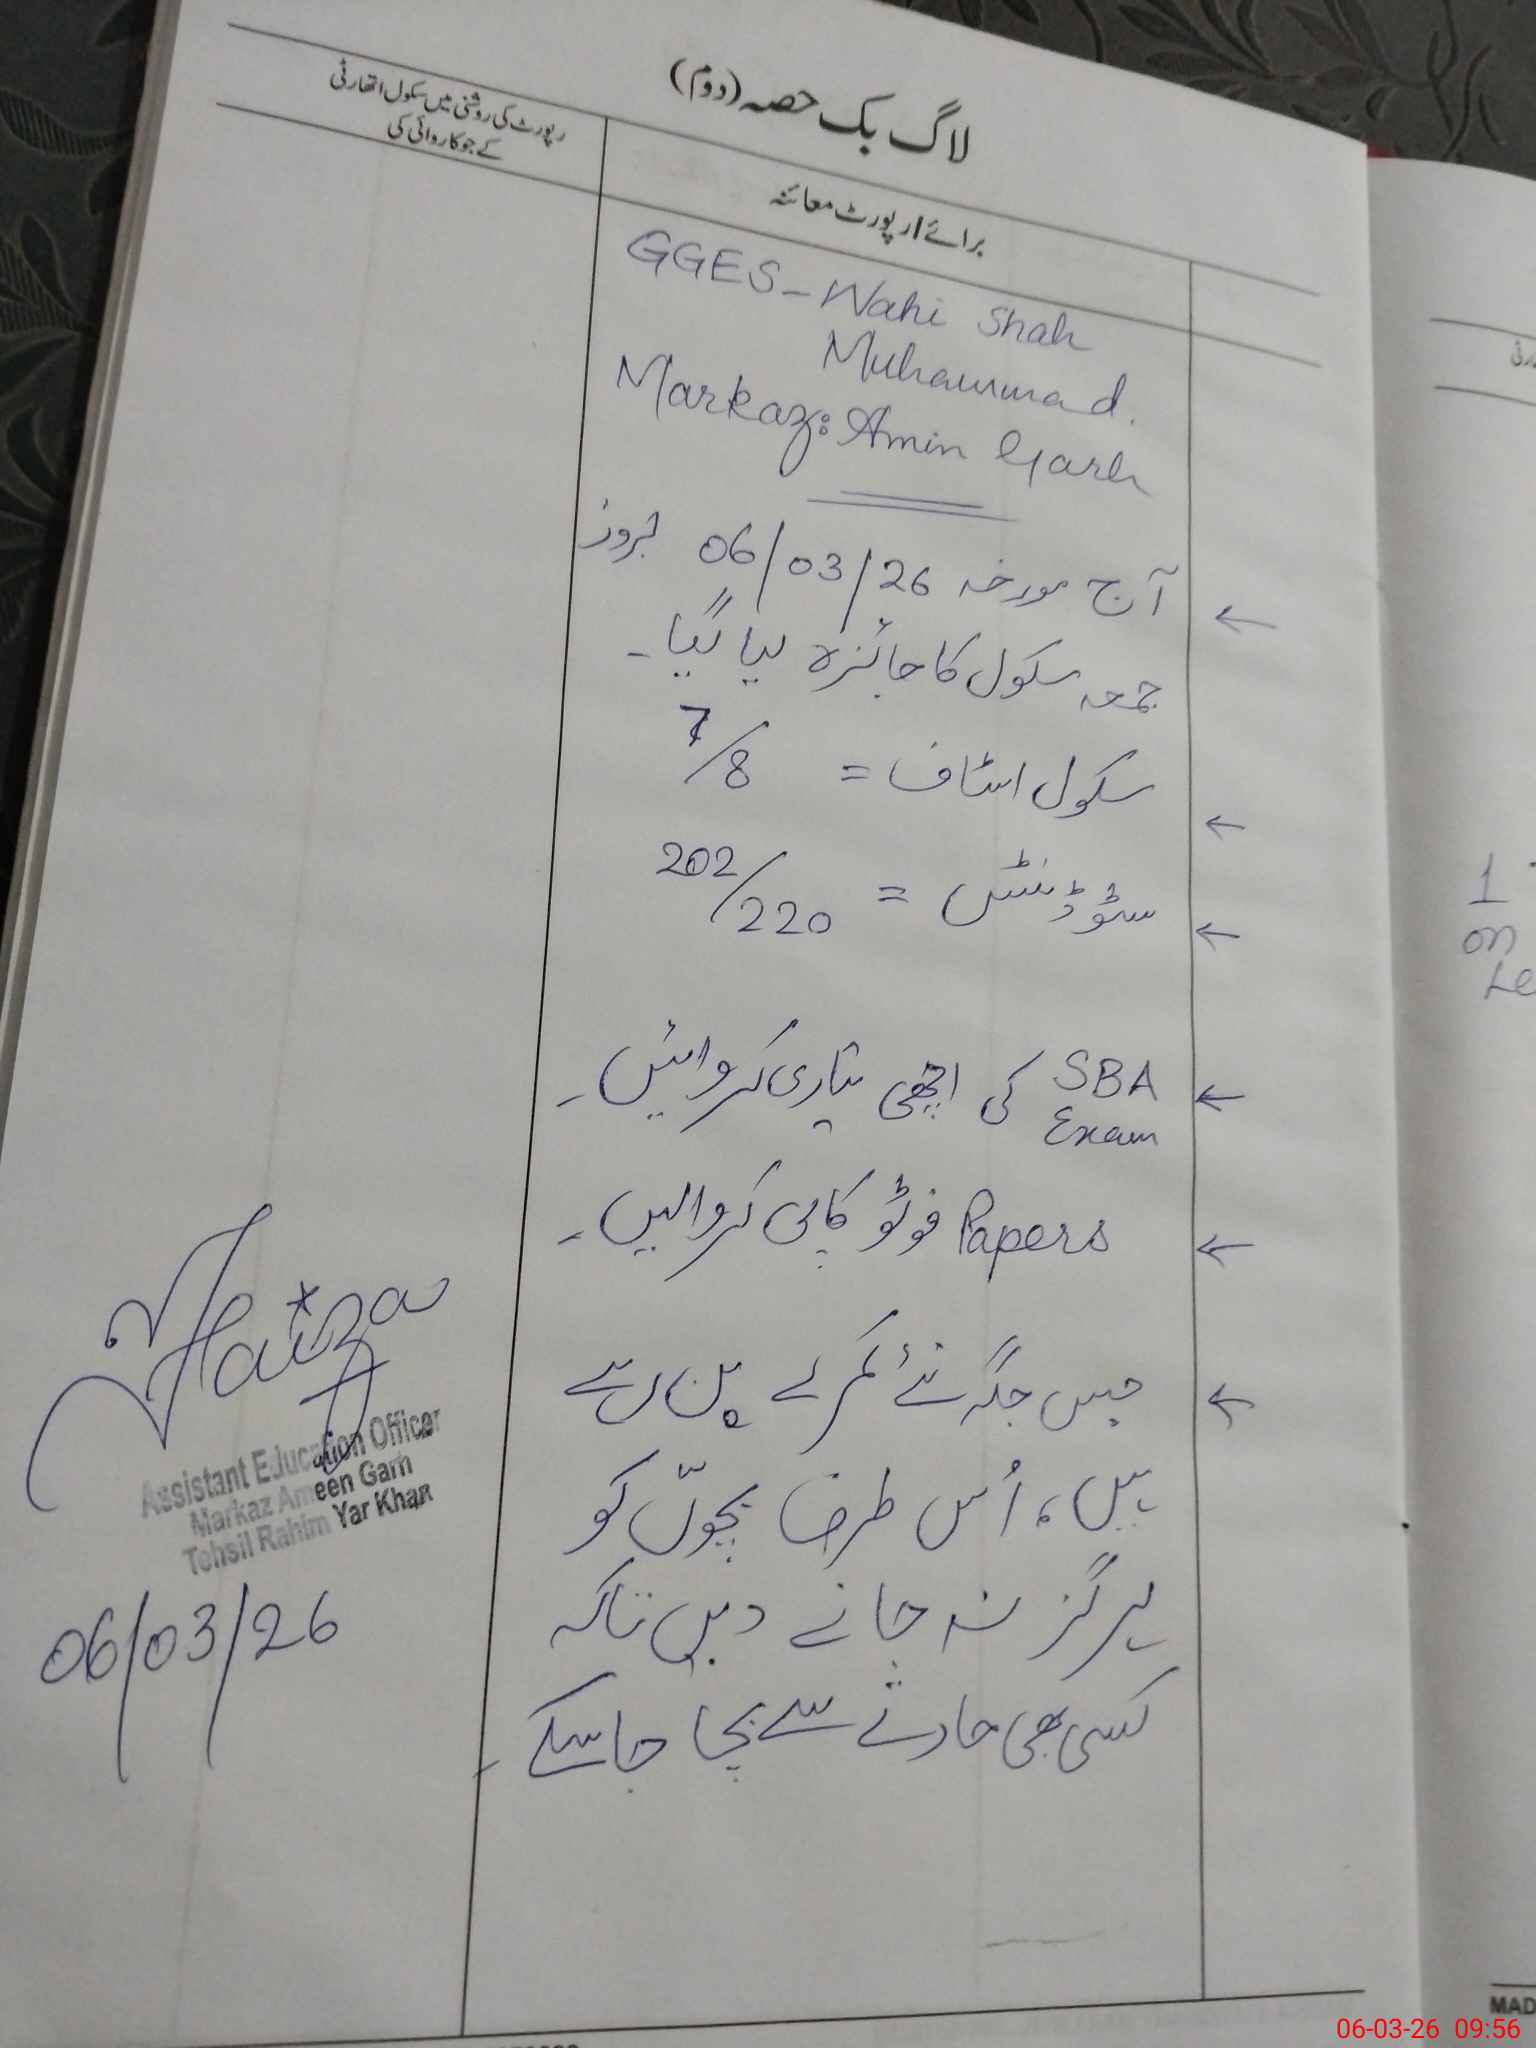 لاگ بک حصہ (دوم)
برائے رپورٹ معائنہ
رپورٹ کی روشنی میں سکول اتھارٹی
کے جو کاروائی کی
GGES - Wahi Shah
Muhammad.
Markaz: Amin Garh
آج مورخہ 06/03/26 بروز
جمعہ سکول کا جائزہ لیا گیا۔
سکول اسٹاف = 7/8
سٹوڈنٹس = 202/220
SBA Exam کی اچھی تیاری کروائیں۔
Papers فوٹو کاپی کروالیں۔
جس جگہ نئے کمرے بن رہے
ہیں، اُس طرف بچوّں کو
ہرگز نہ جانے دیں تاکہ
کسی بھی حادثے سے بچا جا سکے۔
Faiza
Assistant Education Officer
Markaz Ameen Garh
Tehsil Rahim Yar Khan
06/03/26
1
on
Le
MAD
06-03-26 09:56